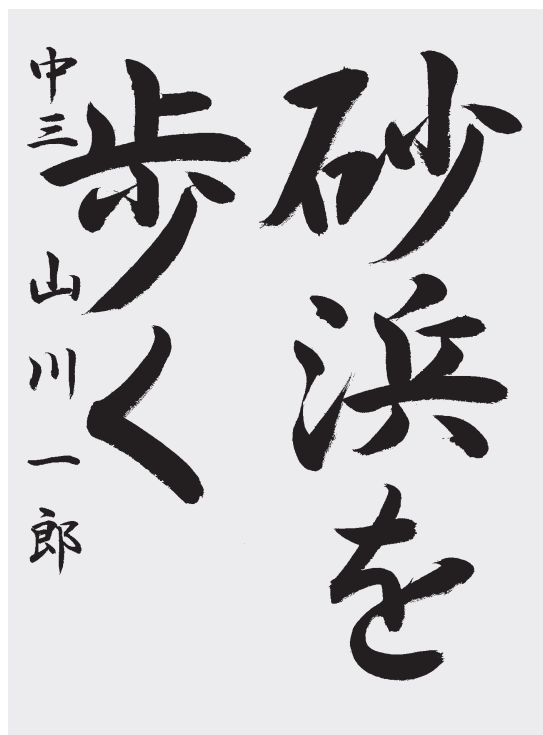 砂浜を
歩く
中三 山川一郎